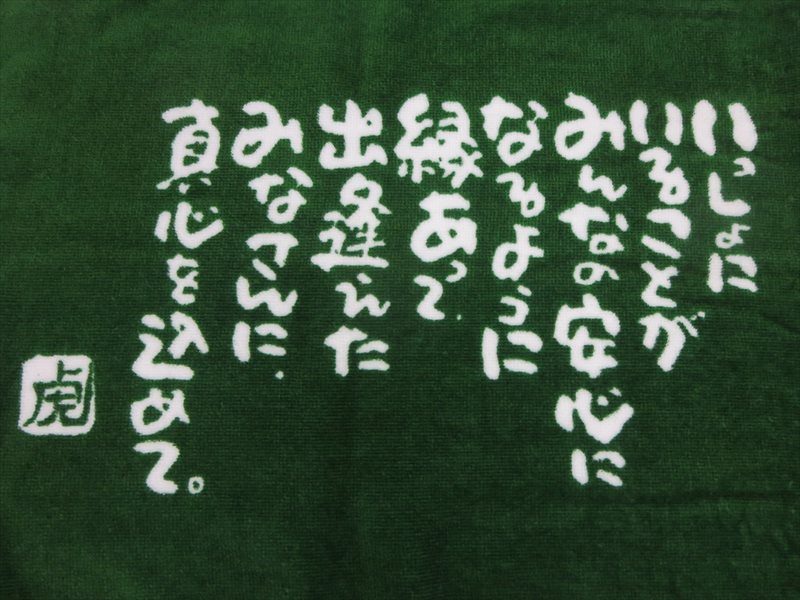 いっしょに
いることが
みんなの安心に
なるように
縁あって
出逢えた
みなさんに、
真心を込めて。
虎